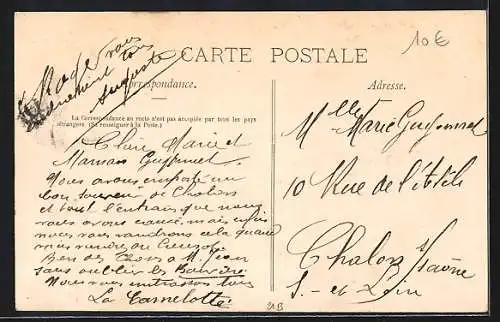 CARTE POSTALE
10€
vous
tous
Auguste
Correspondance.
Adresse.
La Correspondance au recto n'est pas acceptée par tous les pays
étrangers (Se renseigner à la Poste.)
Chère Marie et
Maman Guyonnet
Nous avons emporté un
bon souvenir de Chalon
et tout l'entrain que nous
vous avons causé mais enfin
nous vous revaudrons cela quand
vous viendrez au Creuzot
Bien des choses à M. Jean
sans oublier les
Nous vous embrassons tous
La Camelotte
Mlle Marie Guyonnet
10 Rue de l'
Chalon s/Saône
S.-et Loire